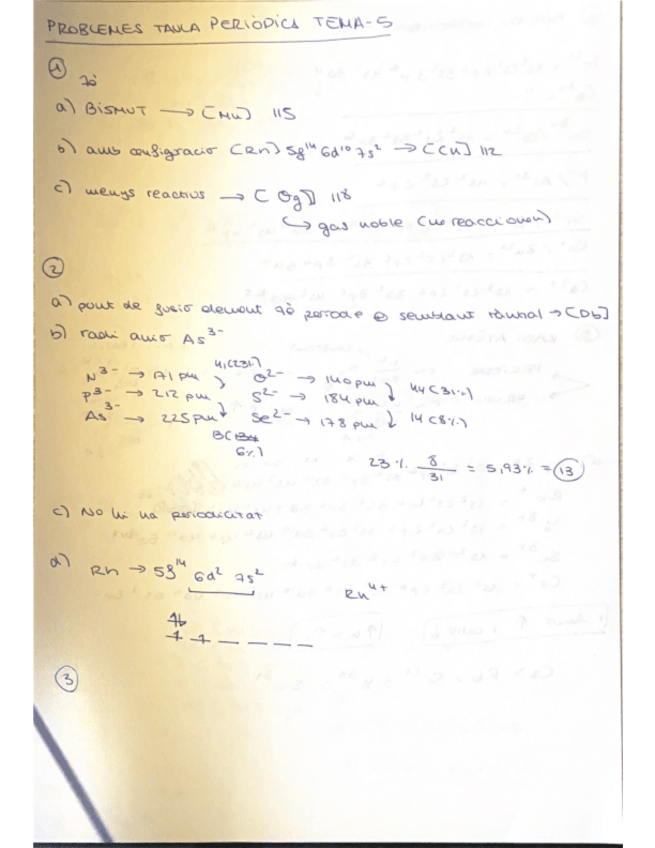 PROBLEMES TAULA PERIÒDICA TEMA-5
①
7è
a) BISMUT → [Mu] 115
b) amb configració [Rn] 5f¹⁴ 6d¹⁰ 7s² → [Cn] 112
c) menys reactius → [Og] 118
↳ gas noble (no reaccionen)
②
a) punt de fusió element 7è període semblant tàntal → [Db]
b) radi anió As³⁻
N³⁻ → 171 pm O²⁻ → 140 pm 44 (31%)
41 (23%)
P³⁻ → 212 pm S²⁻ → 184 pm
As³⁻ → 225 pm Se²⁻ → 178 pm 14 (8%)
6%)
23% · 8/31 = 5,93% = 13
c) No hi ha periodicitat
d) Rn → 5f¹⁴ 6d² 7s²
Rn⁴⁺
③